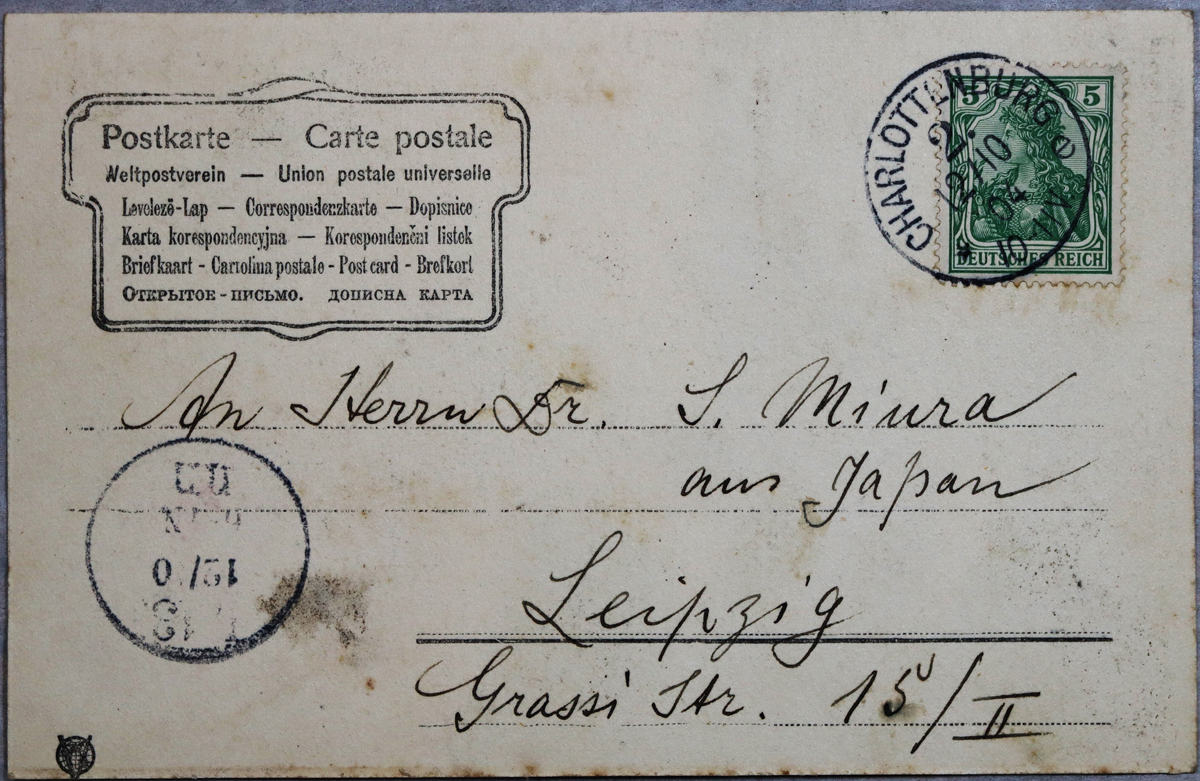 Postkarte — Carte postale
Weltpostverein — Union postale universelle
Levelezĕ-Lap — Correspondenzkarte — Dopisnice
Karta korespondencyjna — Korespondenčni listek
Briefkaart - Cartolina postale - Post card - Brefkort
Открытое-письмо. дописна карта
CHARLOTTENBURG
2.
12/10
04
10-11V.
5 5
DEUTSCHES REICH
An Herrn Dr. S. Miura
aus Japan
Leipzig
Grassi Str. 15/II